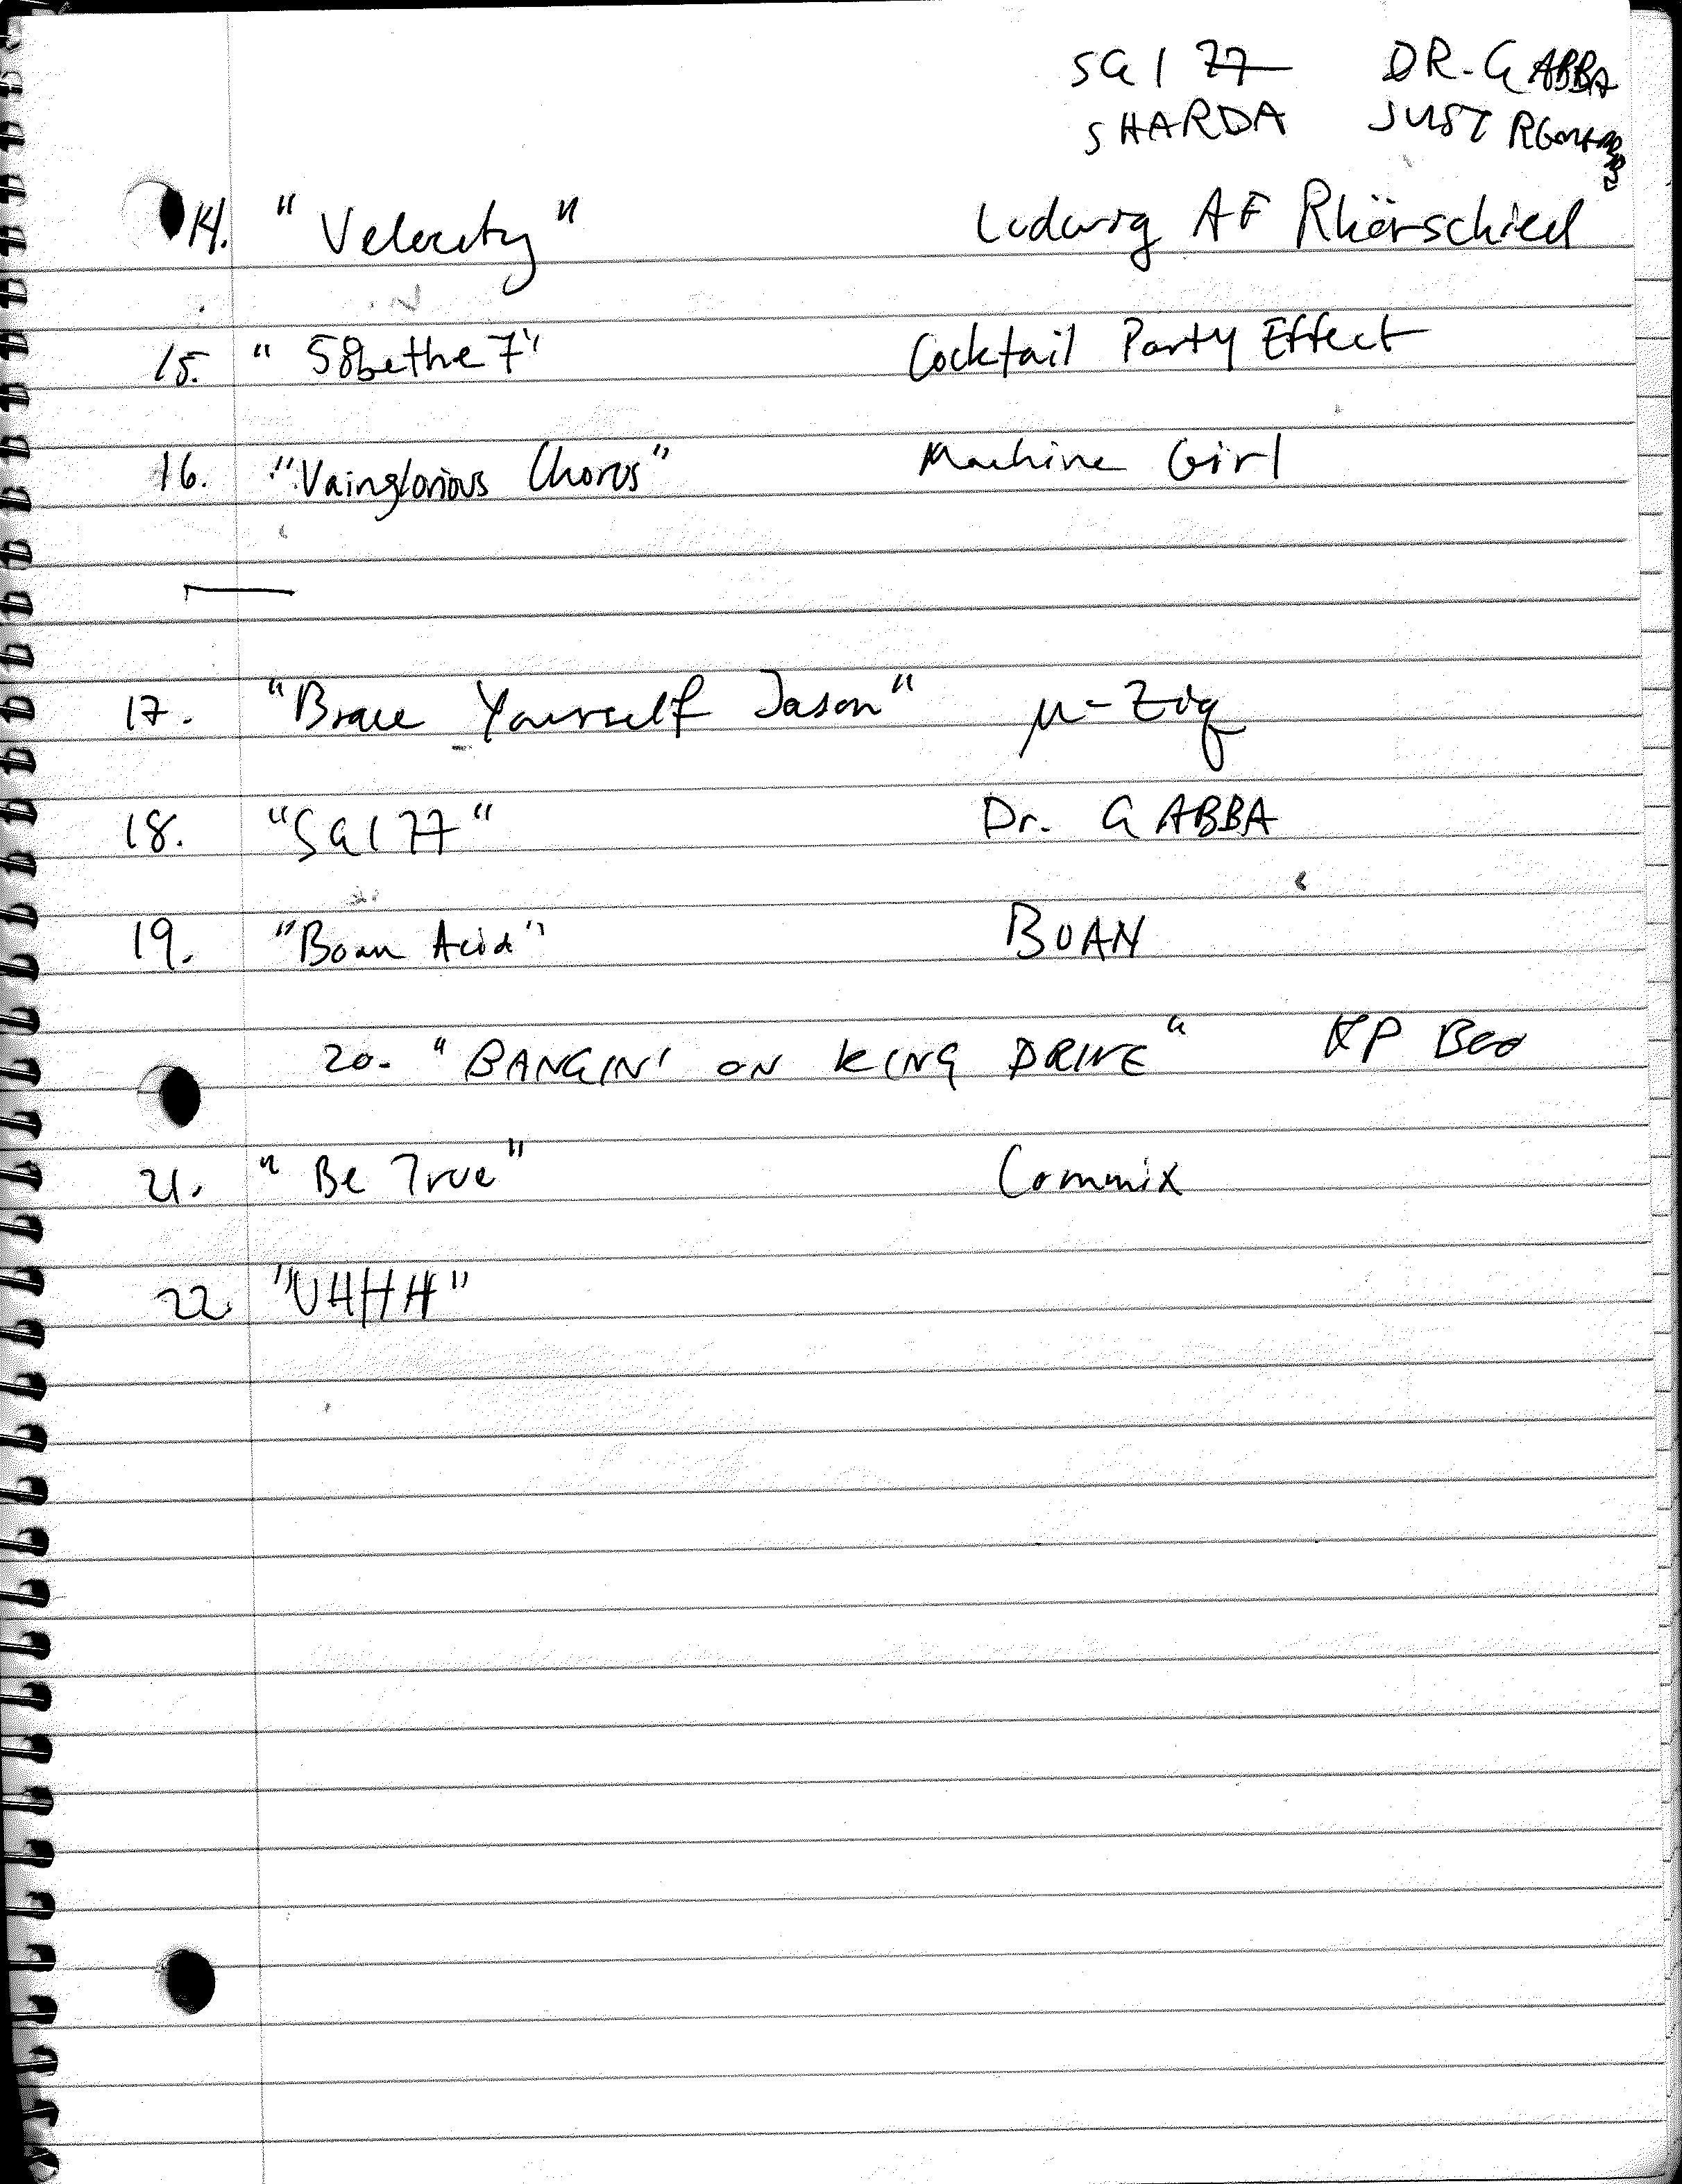 SG 1 77 DR. GABBA
SHARDA JUST
14. "Velocity" Ludwig AF Rhörschied
15. "58bethe7" Cocktail Party Effect
16. "Vainglorious Chorus" Machine Girl
17. "Brace Yourself Jason" µ-Ziq
18. "SG177" Dr. GABBA
19. "Boan Acid" BOAN
20. "BANGIN' ON KING DRIVE" XP Beo
21. "Be True" Commix
22. "UHHH"